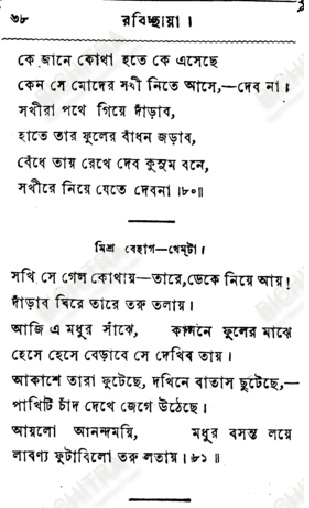 ৩৮ রবিচ্ছায়া।
কে জানে কোথা হতে কে এসেছে
কেন সে মোদের সখী নিতে আসে,—দেব না॥
সখীরা পথে গিয়ে দাঁড়াব,
হাতে তার ফুলের বাঁধন জড়াব,
বেঁধে তায় রেখে দেব কুসুম বনে,
সখীরে নিয়ে যেতে দেবনা॥৮০॥
মিশ্র বেহাগ—খেম্‌টা।
সখি সে গেল কোথায়—তারে, ডেকে নিয়ে আয়!
দাঁড়াব ঘিরে তারে তরু তলায়।
আজি এ মধুর সাঁঝে, কাননে ফুলের মাঝে
হেসে হেসে বেড়াবে সে দেখিব তায়।
আকাশে তারা ফুটেছে, দখিনে বাতাস ছুটেছে,—
পাখিটি চাঁদ দেখে জেগে উঠেছে।
আয়লো আনন্দময়ি, মধুর বসন্ত লয়ে
লাবণ্য ফুটাবিলো তরু লতায়।৮১॥
BICHITRA